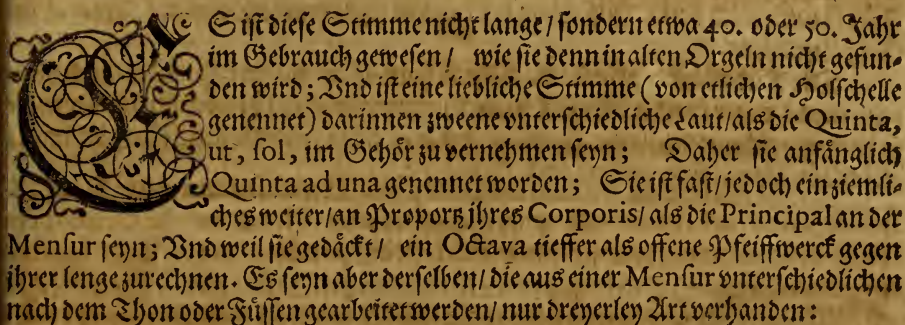 ES ist diese Stimme nicht lange / sondern etwa 40. oder 50. Jahr
im Gebrauch gewesen / wie sie denn in alten Orgeln nicht gefun-
den wird; Vnd ist eine liebliche Stimme (von etlichen Holschelle
genennet) darinnen zweene vnterschiedliche Laut / als die Quinta,
ut, sol, im Gehör zu vernehmen seyn; Daher sie anfänglich
Quinta ad una genennet worden; Sie ist fast / jedoch ein ziemli-
ches weiter / an Proportz jhres Corporis / als die Principal an der
Mensur seyn; Vnd weil sie gedäckt / ein Octava tieffer als offene Pfeiffwerck gegen
jhrer lenge zurechnen. Es seyn aber derselben / die aus einer Mensur vnterschiedlichen
nach dem Thon oder Füssen gearbeitet werden / nur dreyerley Art verhanden: